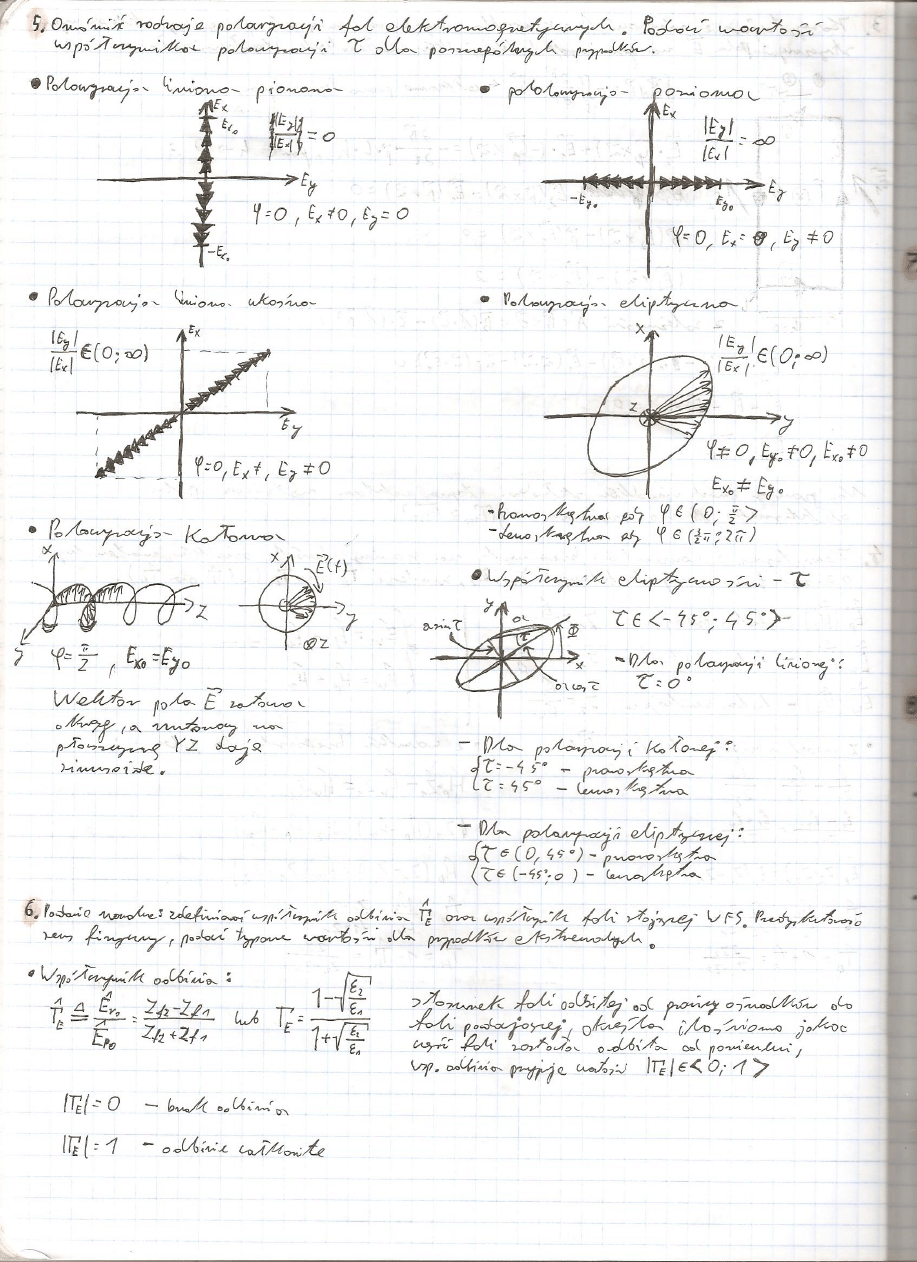 5. Omówić rodzaje polaryzacji fal elektromagnetycznych. Podać wartości
współczynników polaryzacji τ dla poszczególnych przypadków.
• Polaryzacja liniowa pionowa
Ex
Ex₀
|Ey|/|Ex| = 0
Ey
φ=0, Ex≠0, Ey=0
-Ex₀
• polaryzacja pozioma
Ex
|Ey|/|Ex| = ∞
-Ey₀ Ey₀ Ey
φ=0, Ex=0, Ey≠0
• Polaryzacja liniowa ukośna
|Ey|/|Ex| ∈(0;∞)
Ex
Ey
φ=0, Ex≠, Ey≠0
• Polaryzacja eliptyczna
x
|Ey|/|Ex| ∈(0;∞)
z
y
φ≠0, Ey₀≠0, Ex₀≠0
Ex₀≠Ey₀
-Prawoskrętna gdy φ∈(0;π/2>
-Lewoskrętna gdy φ∈(3/2π;2π)
• Polaryzacja Kołowa
x
z
y
x
E⃗(t)
y
⊗z
φ=π/2, Ex₀=Ey₀
Wektor pola E⃗ zatacza
okrąg, a rzutowany na
płaszczyznę YZ daje
sinusoidę.
• Współczynnik eliptyczności - τ
y
a
a sinτ
τ
Φ
x
a cosτ
τ∈<-45°;45°>
- Dla polaryzacji liniowej:
τ=0°
- Dla polaryzacji Kołowej:
{τ=-45° - prawoskrętna
{τ=45° - lewoskrętna
- Dla polaryzacji eliptycznej:
{τ∈(0,45°) - prawoskrętna
{τ∈(-45°;0) - lewoskrętna
6. zdefiniować współczynnik odbicia Γ̂E oraz współczynnik fali stojącej WFS. Przedyskutować
sens fizyczny, podać typowe wartości dla przypadków ekstremalnych.
• Współczynnik odbicia:
Γ̂E ≜ Êr₀/Êp₀ = (Zf2-Zf1)/(Zf2+Zf1) lub ΓE = (1-√(ε2/ε1))/(1+√(ε2/ε1))
stosunek fali odbitej od granicy ośrodków do
fali padającej, określa ilościowo jaka
część fali została odbita od powierzchni,
wsp. odbicia przyjmuje wartości |ΓE|∈<0;1>
|ΓE|=0 - brak odbicia
|ΓE|=1 - odbicie całkowite